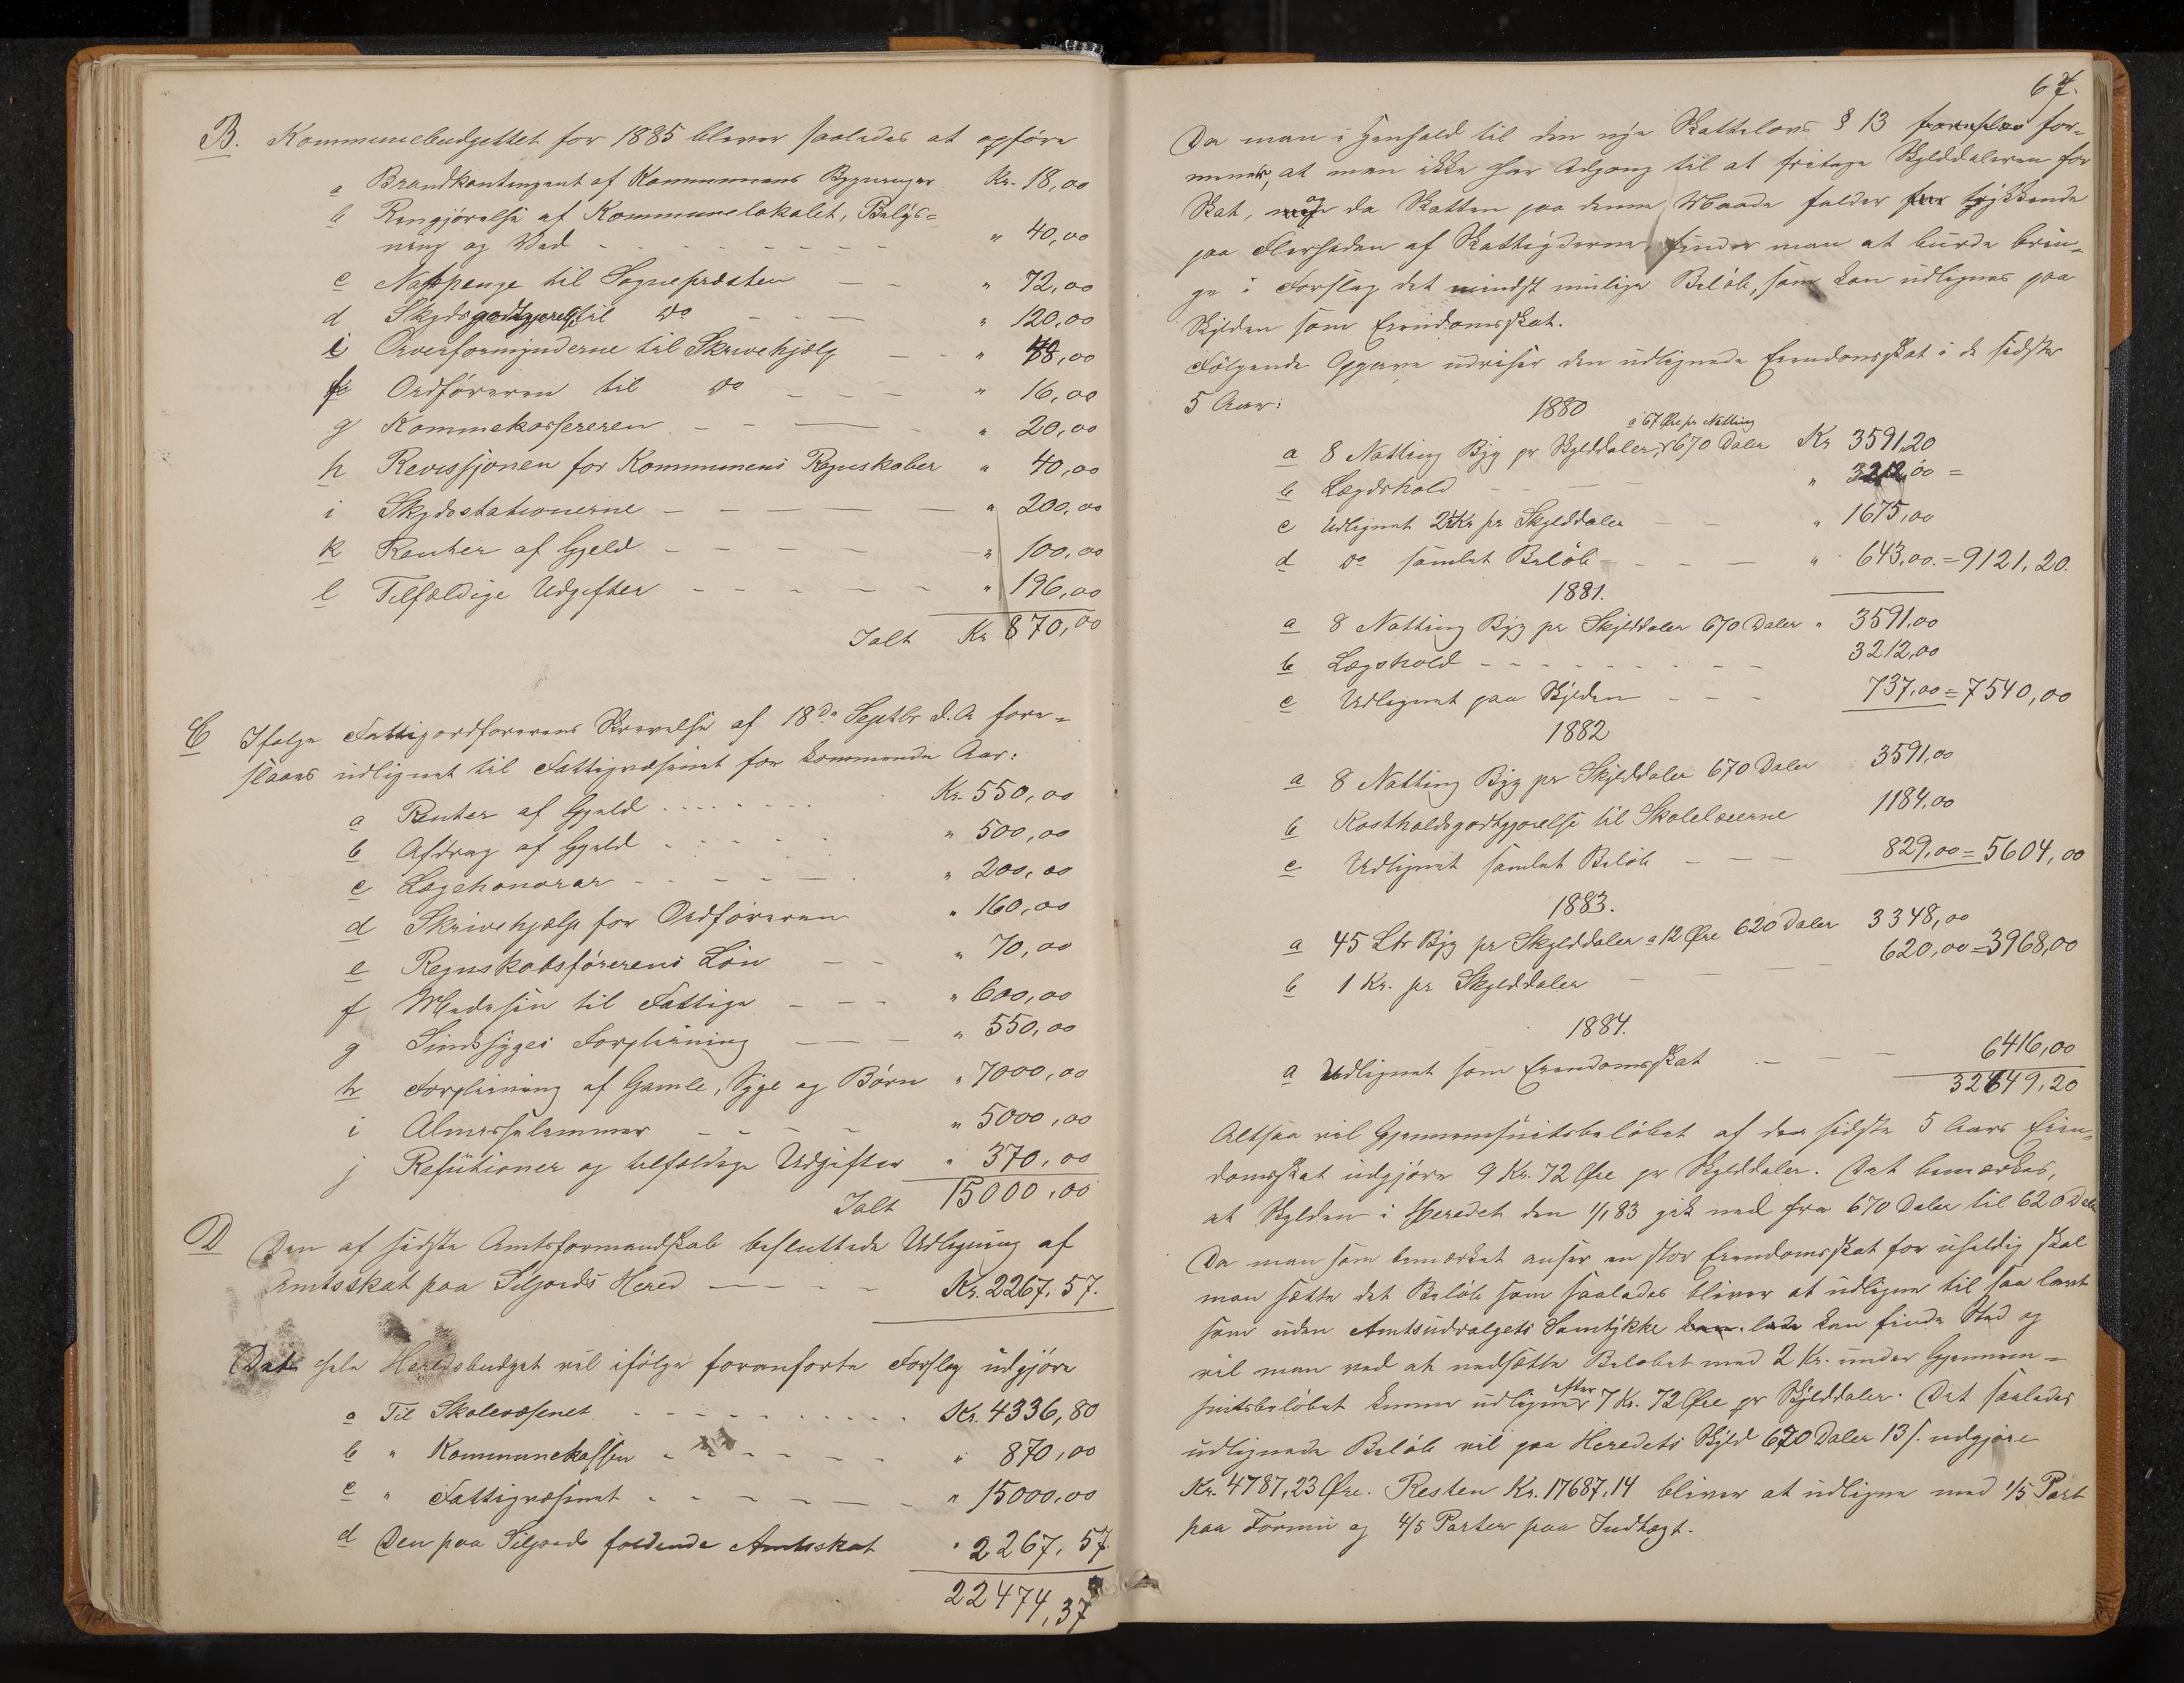 B. Kommunebudgettet for 1885 bliver saaledes at opføre
a Brandkontingent af Kommunens Bygninger Kr. 18,00
b Rengjørelse af Kommunelokalet, Belys=
ning og Ved " 40,00
c Nap penge til Sognepræsten " 72,00
d Skydsgodtgjørelse til Do " 120,00
e Overformynderne til Skrivehjælp " 48,00
f Ordføreren til Do " 16,00
g Kommekassereren " 20,00
h Revisjonen for Kommunens Regnskaber " 40,00
i Skydsstationerne " 200,00
k Renter af Gjeld " 100,00
l Tilfældige Udgifter " 196,00
Ialt Kr 870,00
C Ifølge Fattigordførerens Skrivelse af 18de Septbr d.A fore=
slaaes udlignet til Fattigvæsenet for kommende Aar:
a Renter af Gjeld Kr. 550,00
b Afdrag af Gjeld " 500,00
c Lægehonorar " 200,00
d Skrivehjælp for Ordføreren " 160,00
e Regnskabsførerens Løn " 70,00
f Medesin til Fattige " 600,00
g Sindssyges Forpleining " 550,00
h Forpleining af Gamle, Syge og Børn " 7000,00
i Almisselemmer " 5000,00
j Refutioner og tilfældige Udgifter " 370,00
Ialt 15000,00
D Den af sidste Amtsformandskab besluttede Udligning af
Amtsskat paa Siljords Hered Kr. 2267,57.
Det hele Heredsbudget vil ifølge foranførte Forslag udgjøre
a Til Skolevæsenet Kr. 4336,80
b " Kommunekassen " 870,00
c " Fattigvæsenet " 15000,00
d Den paa Siljord faldende Amtsskat " 2267,57
22474,37
67.
Da man i Henhold til den nye Skattelovs § 13 foreslaa for=
mener, at man ikke har Adgang til at fritage Skylddaleren for
Skat, og da Skatten paa denne Maade falder for trykkende
paa Flerheden af Skatteyderne, finder man at burde brin=
ge i Forslag det mindst mulige Beløb, som kan udlignes paa
Skylden som Eiendomsskat.
Følgende Opgave udviser den udlignede Eiendomsskat i de sidste
5 Aar:
1880
a 67 Øre pr Notting
a 8 Notting Byg pr Skylddaler, 670 Daler Kr 3591,20
b Lægdshold " 3212,00 =
c Udlignet 2½ Kr pr Skylddaler " 1675,00
d Do samlet Beløb " 643,00. = 9121,20.
1881.
a 8 Notting Byg pr Skylddaler 670 Daler " 3591,00
b Lægshold 3212,00
c Udlignet paa Skylden 737,00 = 7540,00
1882
a 8 Notting Byg pr Skylddaler 670 Daler 3591,00
b Kostholdsgodtgjørelse til Skolelærerne 1184,00
c Udlignet samlet Beløb 829,00 = 5604,00
1883.
a 45 Ltr Byg pr Skylddaler a 12 Øre 620 Daler 3348,00
b 1 Kr. pr Skylddaler 620,00 = 3968,00
1884.
a Udlignet som Eiendomsskat 6416,00
32649,20
Altsaa vil Gjennemsnitsbeløbet af de sidste 5 Aars Eien=
domsskat udgjøre 9 Kr. 72 Øre pr Skylddaler. Det bemærkes,
at Skylden i Heredet den 1/1 83 gik ned fra 670 Daler til 620 Daler
Da man som bemærket anser en stor Eiendomsskat for uheldig skal
man sætte det Beløb som saaledes bliver at udligne til saa lavt
som uden Amtsudvalgets Samtykke kan lade kan finde Sted og
vil man ved at nedsætte Beløbet med 2 Kr. under Gjennem=
snitsbeløbet kunne udligne efter 7 Kr. 72 Øre pr Skylddaler. Det saaledes
udlignede Beløb vil paa Heredets Skyld 620 Daler 13 s. udgjøre
Kr. 4787,23 Øre. Resten Kr. 17687,14 bliver at udligne med 1/5 Part
paa Formue og 4/5 Parter paa Indtægt.